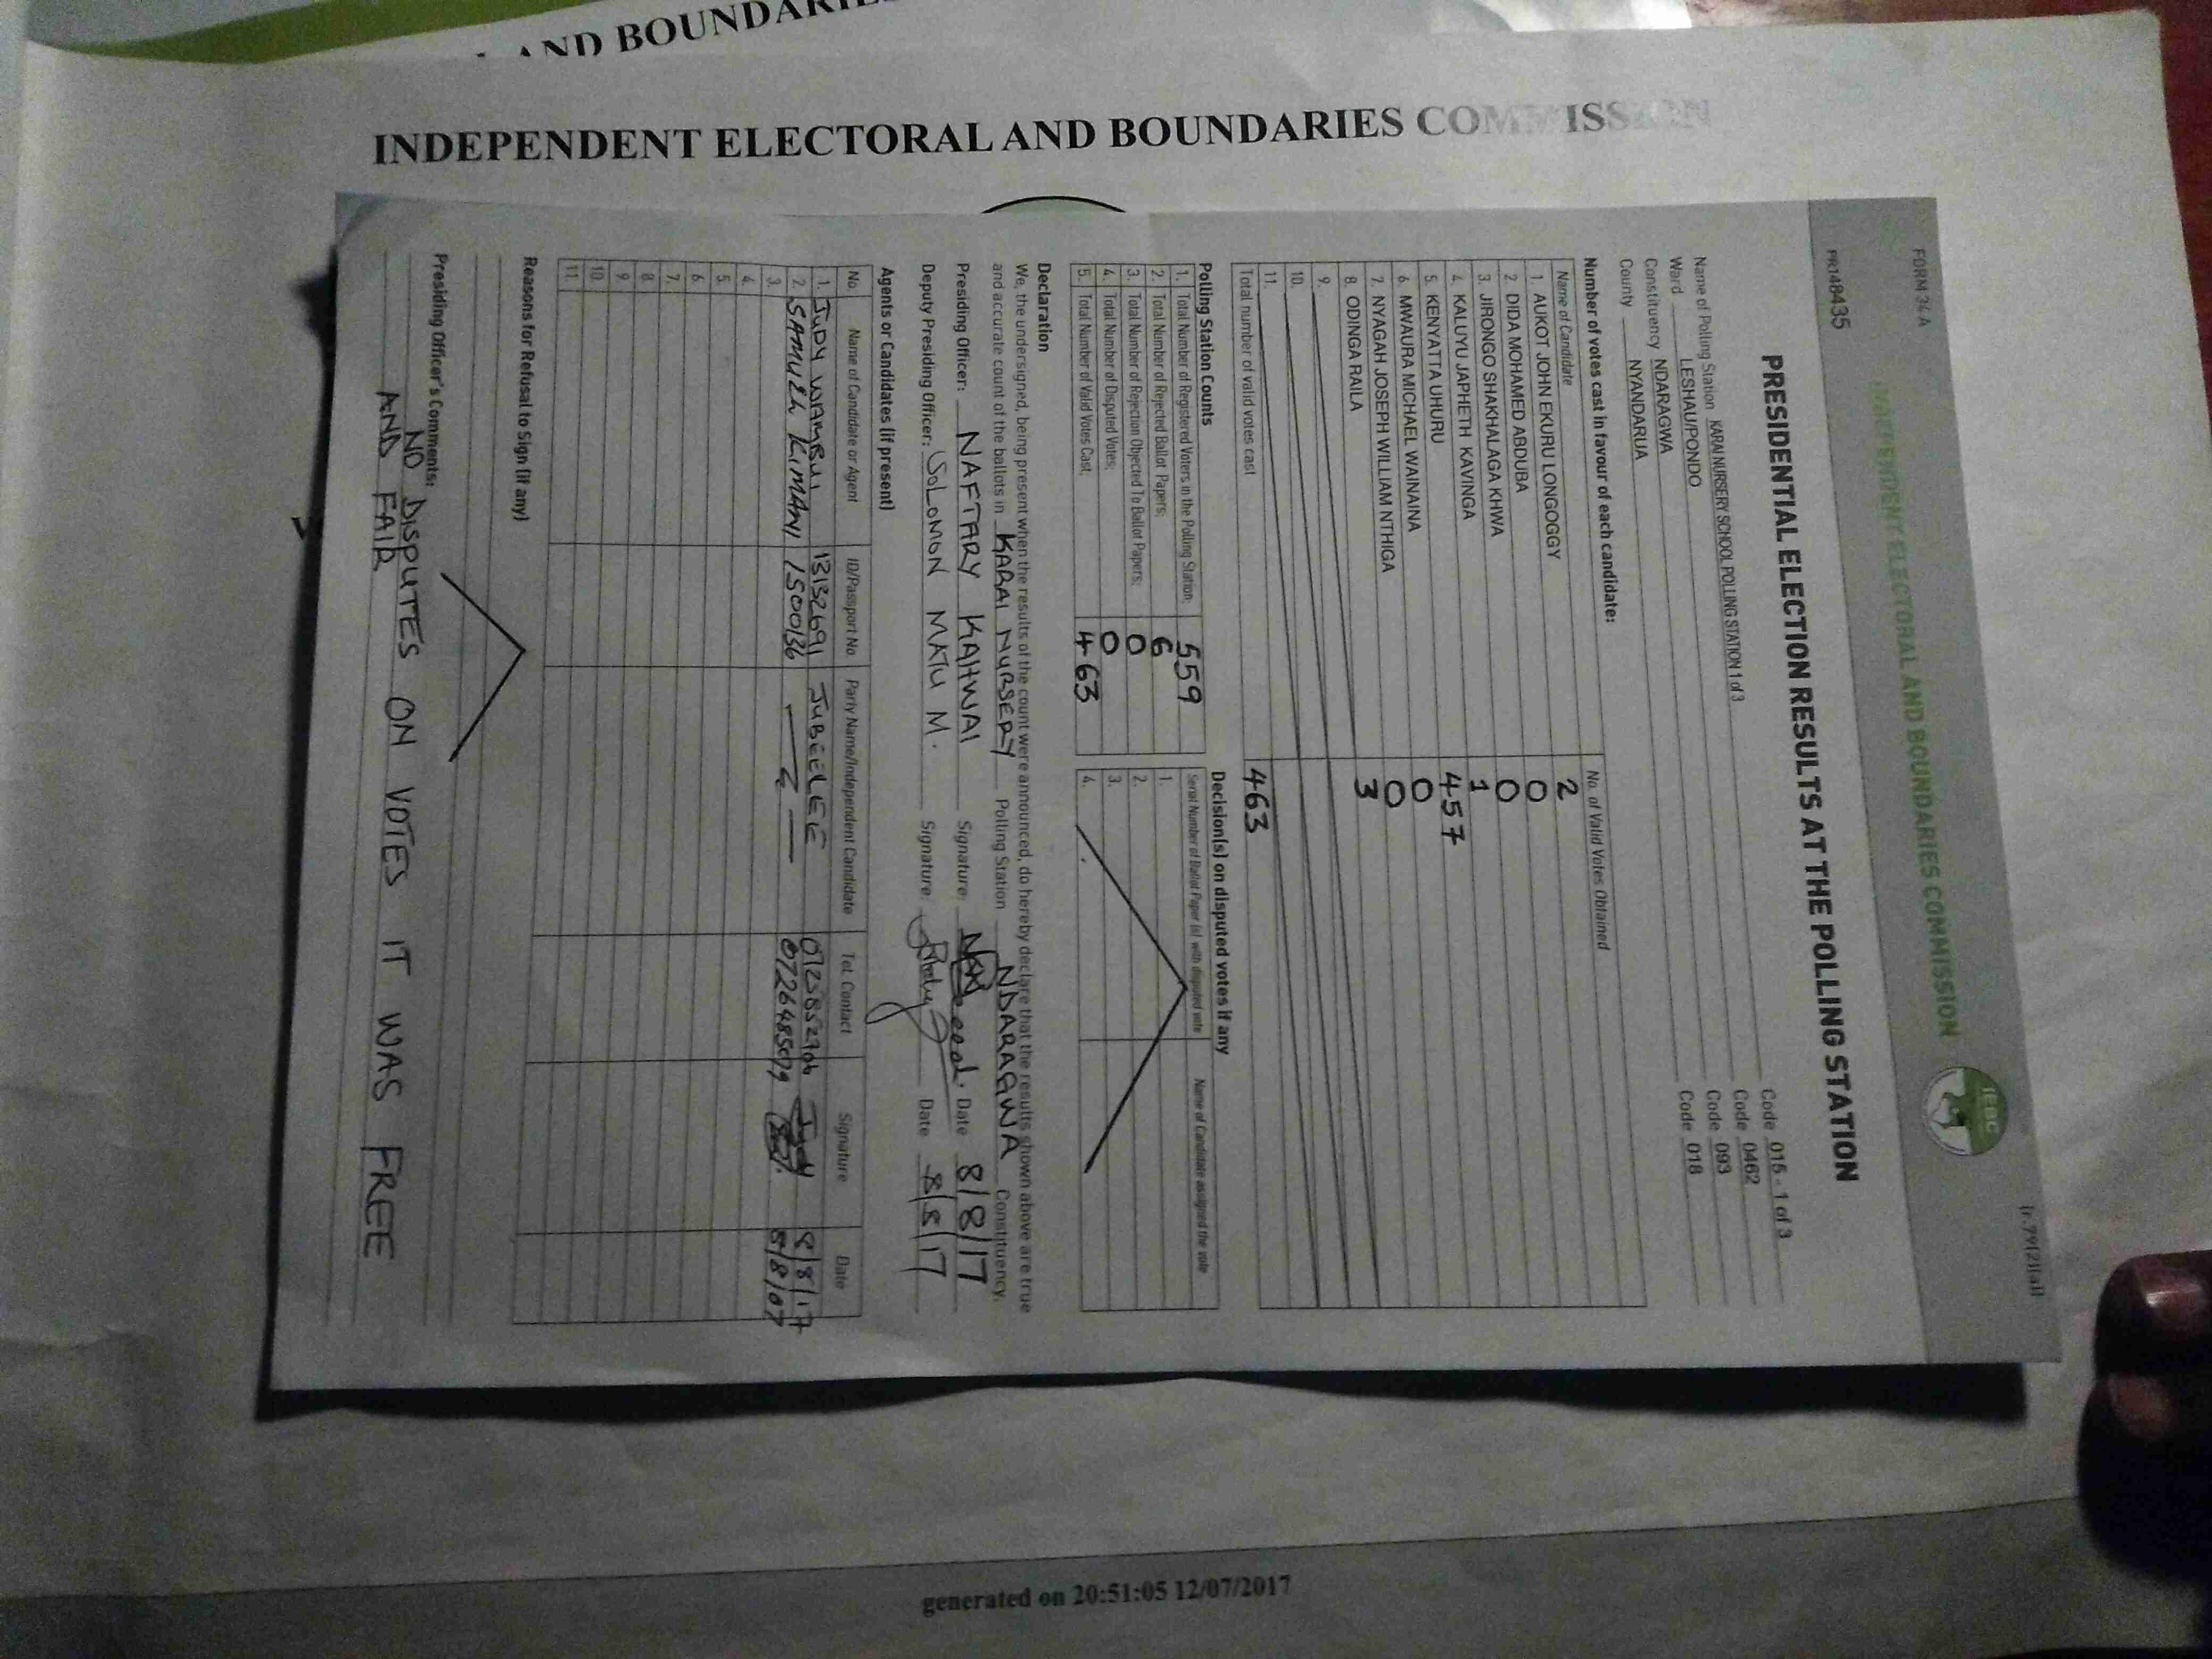 AND BOUNDARIE
INDEPENDENT ELECTORAL AND BOUNDARIES COMMISSION
FORM 34 A
(r.79(2)(a))
INDEPENDENT ELECTORAL AND BOUNDARIES COMMISSION
IEBC
PR148435
PRESIDENTIAL ELECTION RESULTS AT THE POLLING STATION
Name of Polling Station KARAI NURSERY SCHOOL POLLING STATION 1 of 3 Code 015 - 1 of 3
Ward LESHAU/PONDO Code 0462
Constituency NDARAGWA Code 093
County NYANDARUA Code 018
Number of votes cast in favour of each candidate:
Name of Candidate No. of Valid Votes Obtained
1. AUKOT JOHN EKURU LONGOGGY 2
2. DIDA MOHAMED ABDUBA 0
3. JIRONGO SHAKHALAGA KHWA 0
4. KALUYU JAPHETH KAVINGA 1
5. KENYATTA UHURU 457
6. MWAURA MICHAEL WAINAINA 0
7. NYAGAH JOSEPH WILLIAM NTHIGA 0
8. ODINGA RAILA 3
9.
10.
11.
Total number of valid votes cast 463
Polling Station Counts
1. Total Number of Registered Voters in the Polling Station: 559
2. Total Number of Rejected Ballot Papers: 6
3. Total Number of Rejection Objected To Ballot Papers: 0
4. Total Number of Disputed Votes: 0
5. Total Number of Valid Votes Cast: 463
Decision(s) on disputed votes if any
Serial Number of Ballot Paper (s) with disputed vote Name of Candidate assigned the vote
1.
2.
3.
4.
Declaration
We, the undersigned, being present when the results of the count were announced, do hereby declare that the results shown above are true
and accurate count of the ballots in KARAI NURSERY Polling Station NDARAGWA Constituency.
Presiding Officer: NAFTARY KAHWAI Signature: Date 8/8/17
Deputy Presiding Officer: SOLOMON MATU M. Signature: Date 8/8/17
Agents or Candidates (if present)
No. Name of Candidate or Agent ID/Passport No. Party Name/Independent Candidate Tel. Contact Signature Date
1. JUDY WAMBUI 13132691 JUBELEE 8/8/17
2. SAMUEL KIMANI 1500136 0726485079 8/8/07
3.
4.
5.
6.
7.
8.
9.
10.
11.
Reasons for Refusal to Sign (if any)
Presiding Officer's Comments:
NO DISPUTES ON VOTES IT WAS FREE
AND FAIR
generated on 20:51:05 12/07/2017